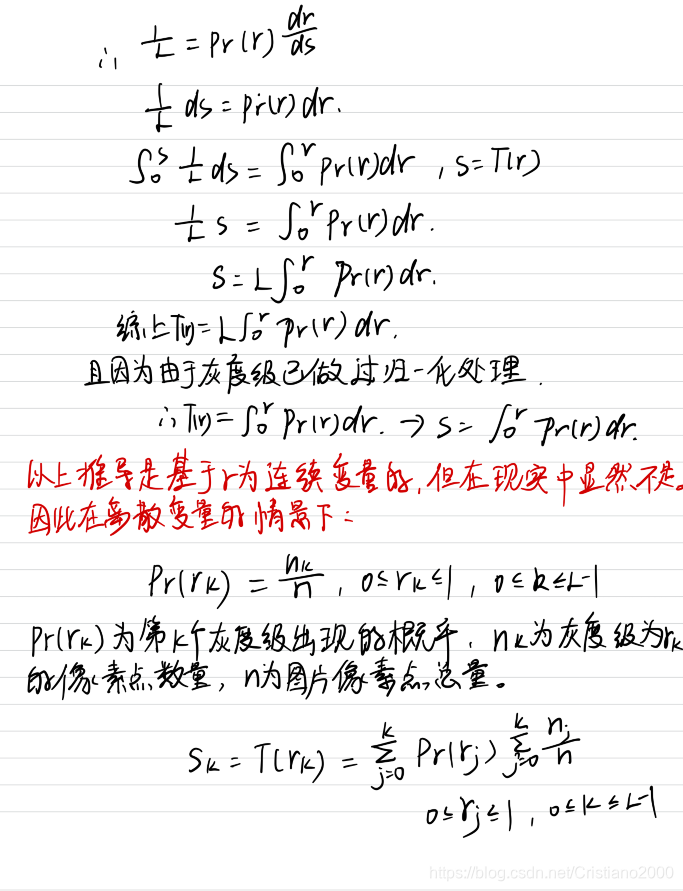 ∴ 1/L = Pr(r) dr/ds
1/L ds = Pr(r) dr.
∫₀ˢ 1/L ds = ∫₀ʳ Pr(r)dr , S = T(r)
1/L s = ∫₀ʳ Pr(r) dr.
S = L∫₀ʳ Pr(r) dr.
综上T(r) = L∫₀ʳ Pr(r) dr.
且因为由于灰度级已做过归一化处理.
∴ T(r) = ∫₀ʳ Pr(r)dr. → S = ∫₀ʳ Pr(r) dr.
以上推导是基于r为连续变量的,但在现实中显然不是。
因此在离散变量的情景下:
Pr(rₖ) = nₖ/n , 0≤rₖ≤1 , 0≤k≤L-1
Pr(rₖ)为第k个灰度级出现的概率. nₖ为灰度级为rₖ
的像素点数量, n为图片像素点总量。
Sₖ = T(rₖ) = ∑ⱼ₌₀ᵏ Pr(rⱼ) ∑ⱼ₌₀ᵏ nⱼ/n
0≤rⱼ≤1 , 0≤k≤L-1
https://blog.csdn.net/Cristiano2000